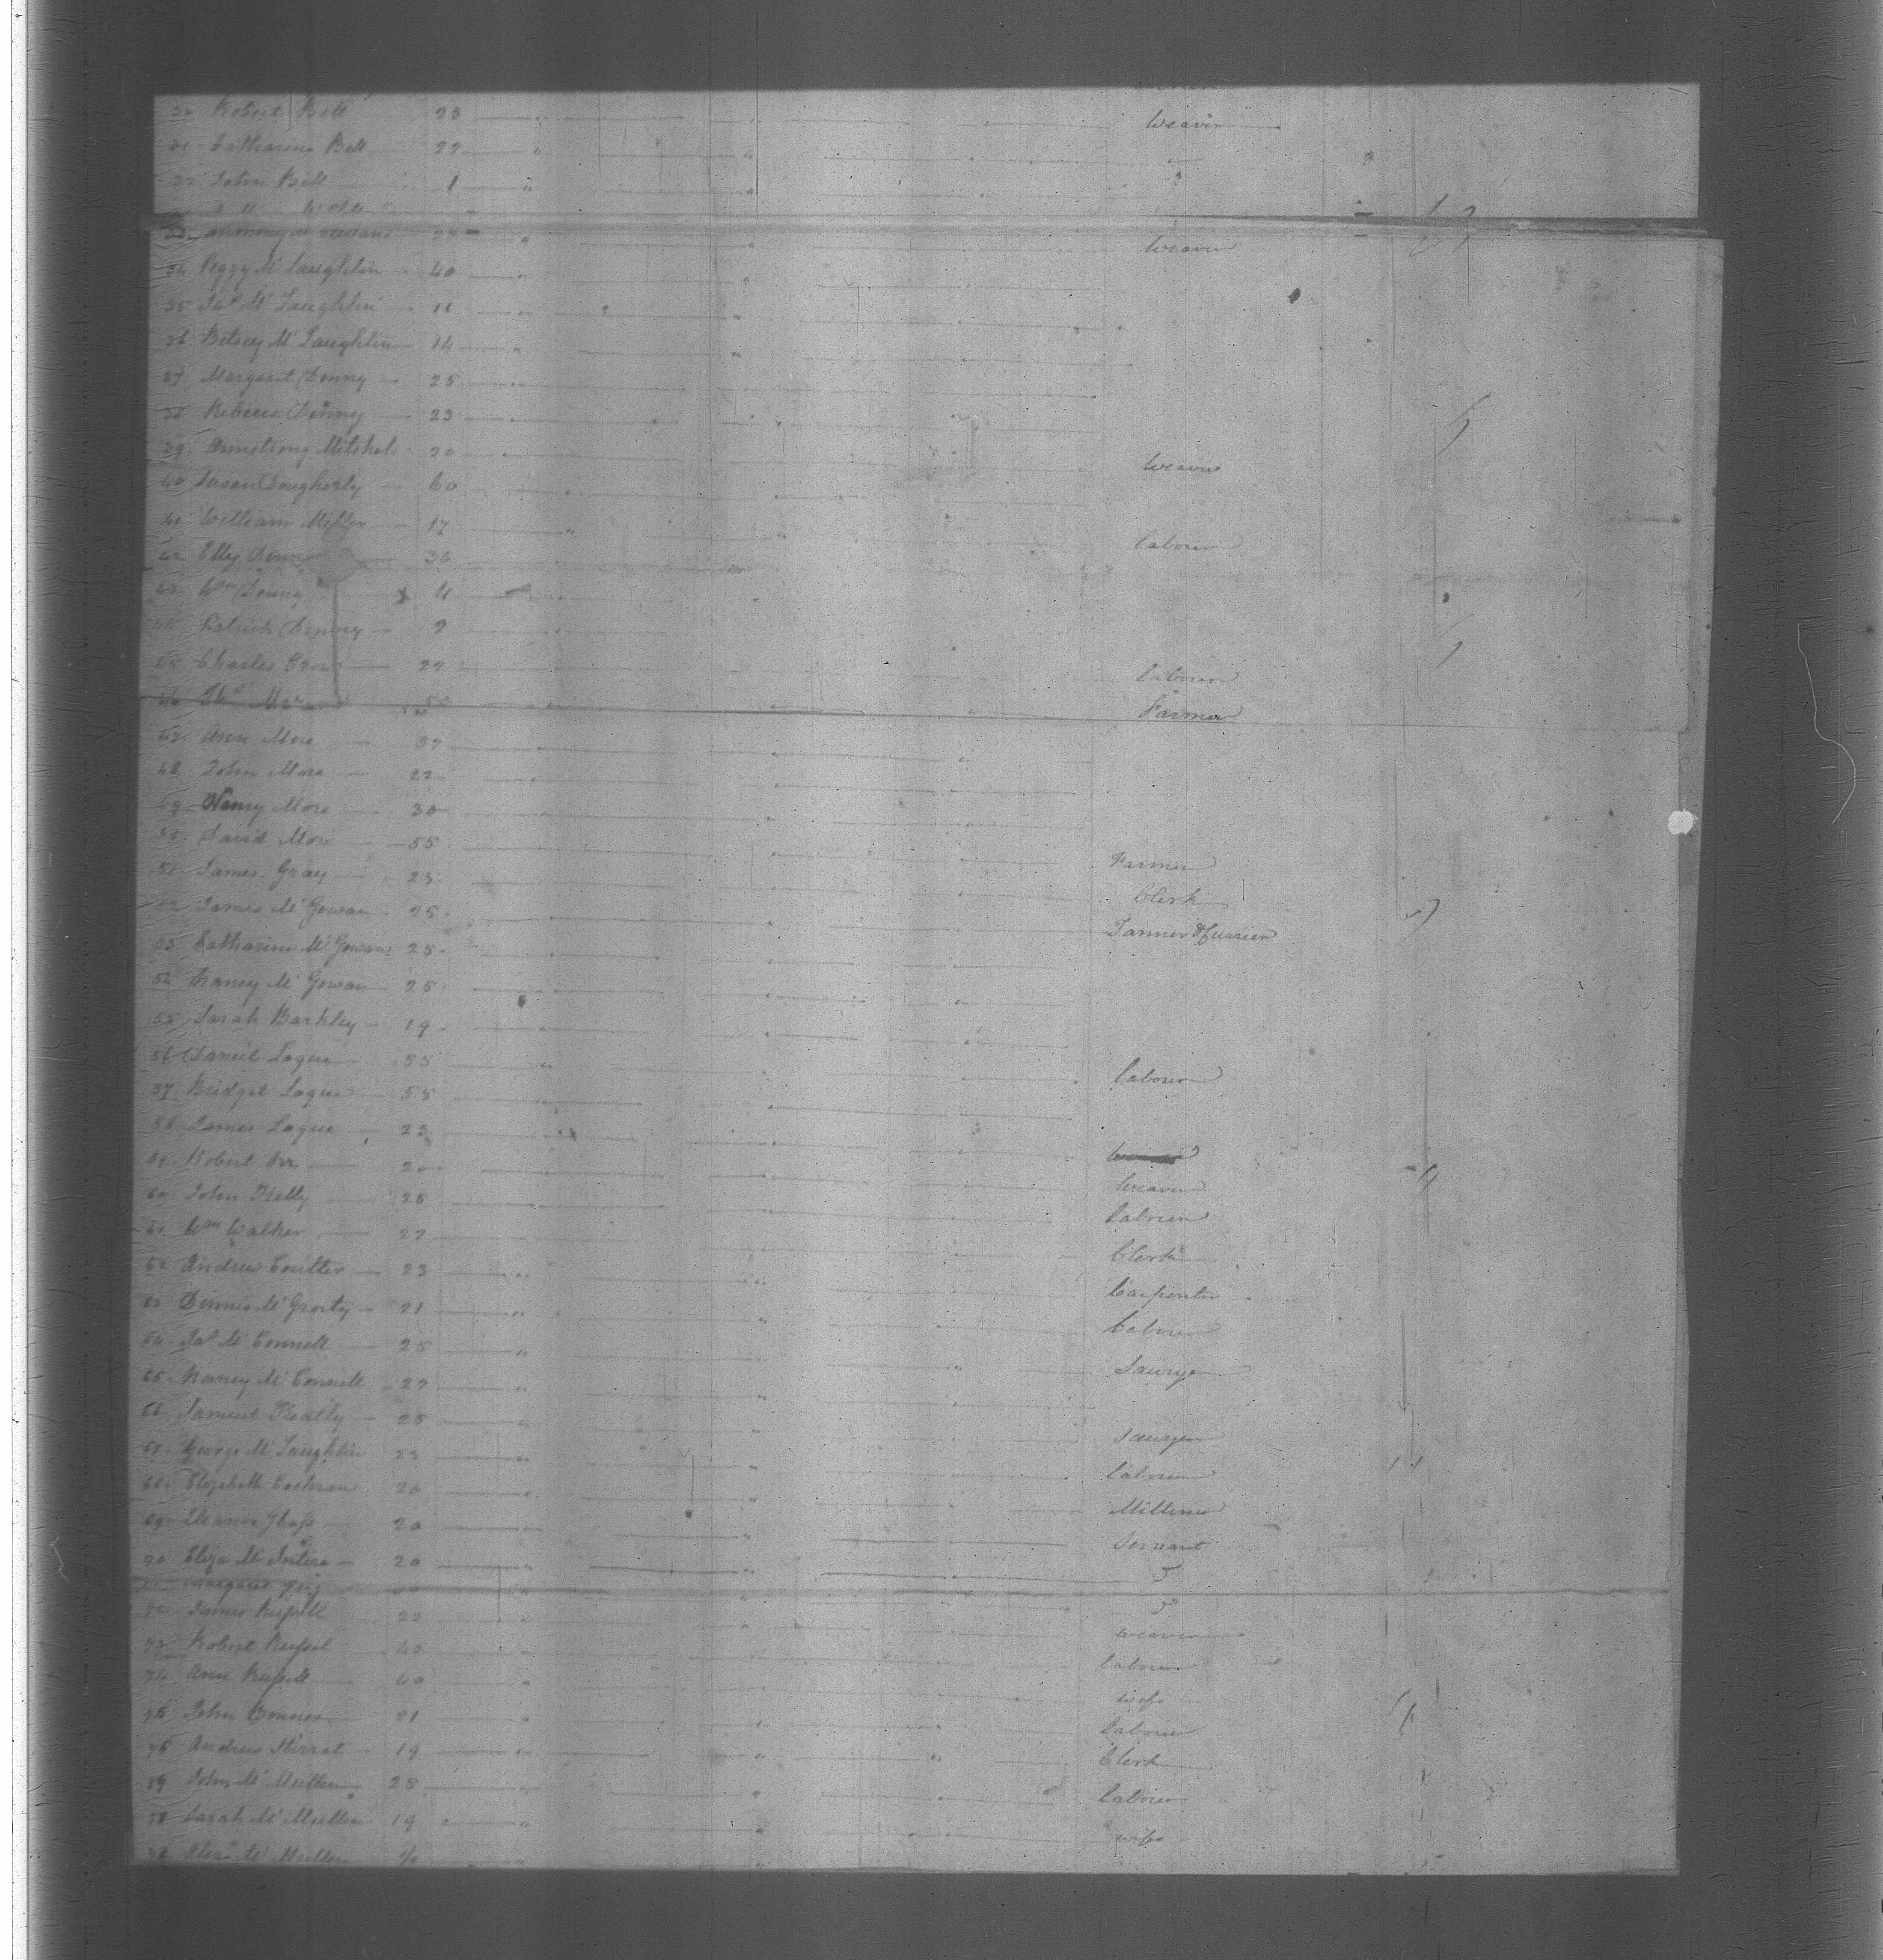 30 Robert Bell 25 " " " Weaver
31 Catharine Bell 22 " " "
32 John Bell 1 " " "
33 Anthony Mc 24 " " " Weaver
34 Peggy Mc Laughlin 40 " " "
35 Jas Mc Laughlin 11 " " "
36 Betsey Mc Laughlin 14 " " "
37 Margaret Denny 25 " " "
38 Rebecca Denny 23 " " "
39 Armstrong Mitchel 20 " " " Weaver
40 Susan Dougherty 60 " " "
41 William Miller 17 " " " Labourer
42 Elly 36 " " "
43 Wm Denny 4 "
44 Patrick Denny 2 "
45 Charles 27 Labourer
46 50 " " Farmer
47 Ann More 37 " " "
48 John More 22 " " "
49 Nancy More 30 " " "
50 David More 55 " " Farmer
51 James Gray 25 " Clerk
52 James Mc Gowan 25 " " " Tanner & Currier
53 Catharine Mc Gowan 25 " " "
54 Nancy Mc Gowan 25 " " "
55 Sarah Barkley 19 " " "
56 Daniel Logue 55 " " " Labourer
57 Bridget Logue 55 " " "
58 James Logue 23 " " "
59 Robert Orr 20 " " " Weaver
60 John Kelly 25 " " " Labourer
61 Wm Walker 27 Clerk
62 Andrew Coulter 23 " " Carpenter
63 Dennis Mc Grorty 21 " " Labourer
64 Jas Mc Connell 25 " " " Sawyer
65 Nancy Mc Connell 27 " "
66 Samuel 25 " " Sawyer
67 George Mc Laughlin 23 " " Labourer
68 Elizabeth Cochran 20 " " " Milliner
69 Eleanor Glass 20 " " Servant
70 Eliza Mc 20 " "
71 Margaret " "
72 James Russell 22 " Weaver
73 Robert Russel 40 Labourer
74 Ann Russell 40 " wife
75 John Bonner 21 " " " Labourer
76 Andrew Stirrat 19 " " " Clerk
77 John Mc Mullen 25 " " " Labourer
78 Sarah Mc Mullen 19 " " " wife
Mc Mullen